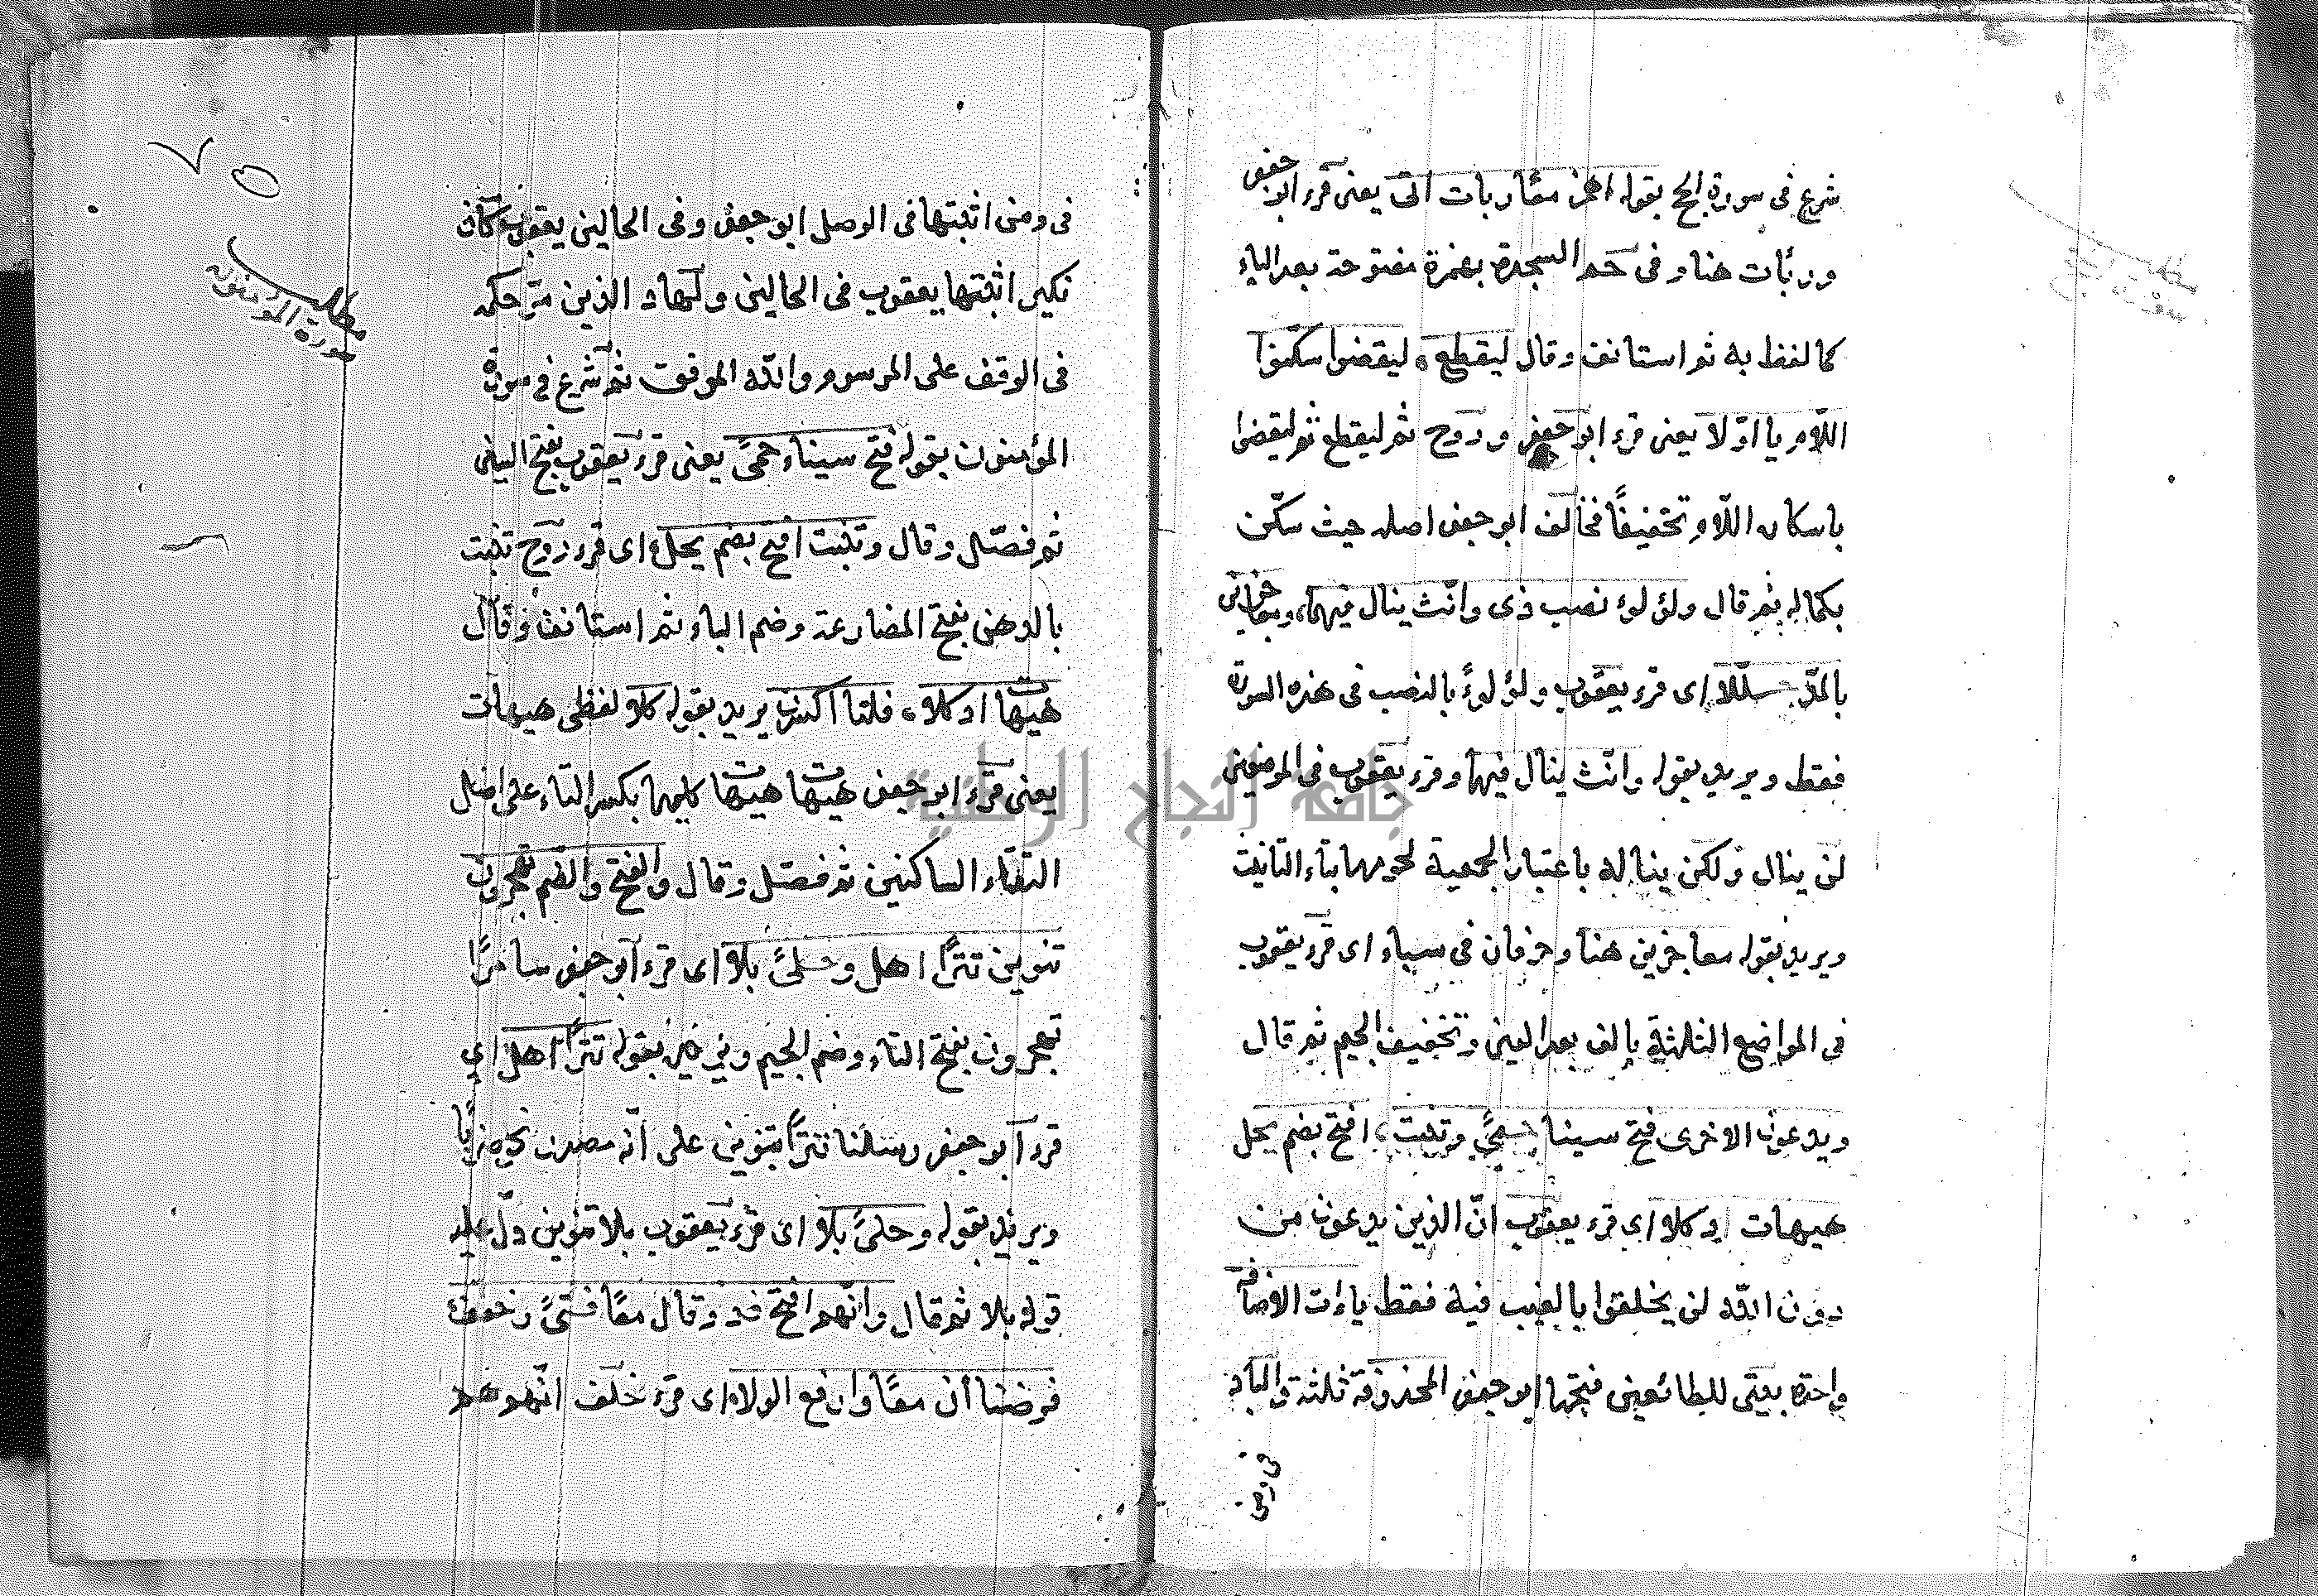 شرع فى سورة الحج بقوله اهمز معًا ربات اتى يعنى قرء ابو جعفر
وربأت هنا وفى حم السجدة بهمزة مفتوحة بعد الباء
كما لفظ به ثم استانف وقال ليقطع ليقضوا سكّنوا
اللّام يا اوّلا يعنى قرء ابو جعفر وروح ثم ليقطع ثم ليقضوا
باسكان اللّام تخفيفًا فخالف ابو جعفر اصله حيث سكّن
بكماله ثم قال ولؤلوء نصب ذى وانّث ينال فيهما ومعاجزين
بالمدّ حللا اى قرء يعقوب ولؤلوءً بالنصب فى هذه السورة
فقط ويريد بقوله وانّث ينال فيهما وقرء يعقوب فى الموضعين
لن ينال ولكن يناله باعتبار الجمعية لحومها بتاء التانيث
ويريد بقوله معاجزين هنا وحرفان فى سباء اى قرء يعقوب
فى المواضع الثلثة بالف بعد العين وتخفيف الجيم ثم قال
ويدعون الاخرى فتح سينا حمىً وتنبت افتح بضم يحل
هيهات اد كلا اى قرء يعقوب انّ الذين يدعون من
دون الله لن يخلقوا بالغيب فيه فقط ياءات الاضافة
واحدة بيتى للطائفين فتحها ابو جعفر المحذوفة ثلثة والباد
فى ومن
فى ومن اثبتها فى الوصل ابو جعفر وفى الحالين يعقوب كان
نكير اثبتها يعقوب فى الحالين ولهاد الذين مرّ حكمه
فى الوقف على المرسوم والله الموفق ثم شرع فى سورة
المؤمنون بقوله فتح سيناء حمىً يعنى قرء يعقوب بفتح السين
ثم فصّل وقال وتنبت افتح بضم يحل اى قرء روح تنبت
بالدهن بفتح المضارعة وضم الباء ثم استانف وقال
هيهات اد كلا فلتا اكسرن يريد بقوله كلا لفظى هيهات
يعنى قرء ابو جعفر هيهات هيهات كليهما بكسر التاء على اصل
التقاء الساكنين ثم فصّل وقال والفتح والضم تهجرون
تنوين تترًا اهل وحلىً بلا اى قرء ابو جعفر سامرًا
تهجرون بفتح التاء وضم الجيم بقوله تترًا اهل اى
قرء ابو جعفر رسلنا تترًا بتنوين على انّه مصدر
ويريد بقوله وحلىً بلا اى قرء يعقوب بلا تنوين دلّ عليه
قوله بلا ثم قال وانّهم افتح فد وقال معًا فتىً وخففت
فرضنا أن معًا وارفع الولا اى قرء خلف انّهم هم
مطلب
سورة المؤمنون
جامعة النجاح الوطنية